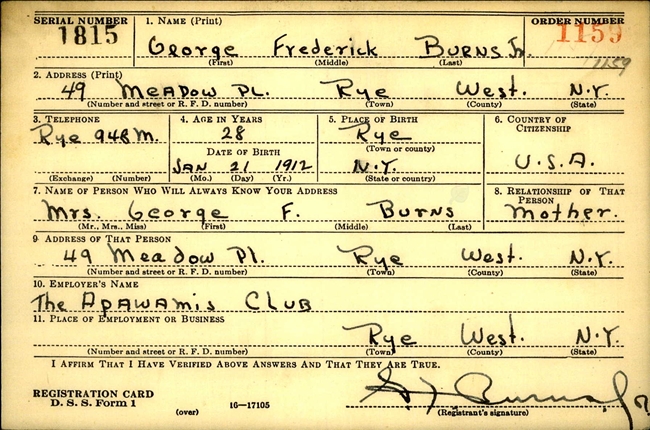 SERIAL NUMBER 1. NAME (Print) ORDER NUMBER
1815 George Frederick BURNS Jr. 1159
(First) (Middle) (Last) 1159
2. ADDRESS (Print)
49 MEADOW PL. Rye West. N.Y.
(Number and street or R. F. D. number) (Town) (County) (State)
3. TELEPHONE 4. AGE IN YEARS 5. PLACE OF BIRTH 6. COUNTRY OF CITIZENSHIP
Rye 948M. 28 Rye
(Town or county)
DATE OF BIRTH U.S.A.
JAN 21 1912 N.Y.
(Exchange) (Number) (Mo.) (Day) (Yr.) (State or country)
7. NAME OF PERSON WHO WILL ALWAYS KNOW YOUR ADDRESS 8. RELATIONSHIP OF THAT PERSON
Mrs. George F. BURNS Mother.
(Mr., Mrs., Miss) (First) (Middle) (Last)
9. ADDRESS OF THAT PERSON
49 Meadow Pl. Rye West. N.Y.
(Number and street or R. F. D. number) (Town) (County) (State)
10. EMPLOYER'S NAME
The APAWAMIS CLUB
11. PLACE OF EMPLOYMENT OR BUSINESS
Rye West. N.Y.
(Number and street or R. F. D. number) (Town) (County) (State)
I AFFIRM THAT I HAVE VERIFIED ABOVE ANSWERS AND THAT THEY ARE TRUE.
REGISTRATION CARD
D. S. S. Form 1 G F Burns Jr
(over) 16-17105 (Registrant's signature)